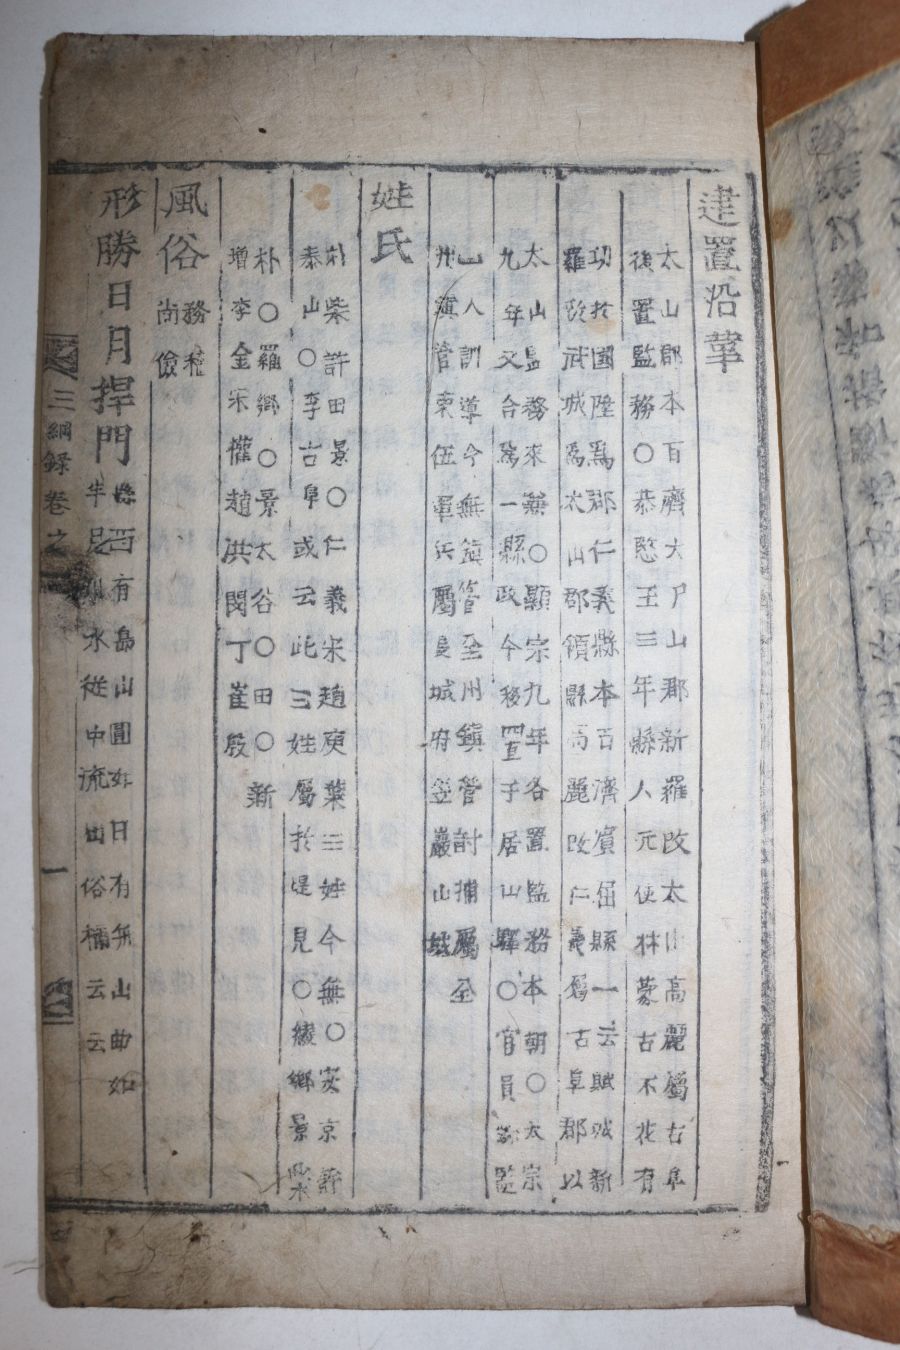 建置沿革
太山郡本百濟大尸山郡新羅改太山高麗屬古阜
後置監務〇恭愍王三年縣人元使林蒙古不花有
功於國陞爲郡仁義縣本百濟賓屈縣一云賦城新
羅改武城爲太山郡領縣高麗改仁義屬古阜郡以
太山監務來兼〇顯宗九年各置監務本朝〇太宗
九年又合爲一縣政今移置于居山驛〇官員縣監
一人訓導今無鎭管至州鎭管討捕屬全
州鎭管束伍軍兵屬長城府笠巖山城
姓氏
朴柴許田景〇仁義宋趙庾葉三姓今無〇安京許
泰山〇李古阜或云此三姓屬於堤見〇綾鄕景
朴〇羅鄕〇景太谷〇田〇新
增李金宋權趙洪閔丁崔殷
風俗
務穡
尚儉
形勝日月捍門
縣西有島山圓如日有弁山曲如
半月川水從中流出俗稱云云
三綱錄卷之 一